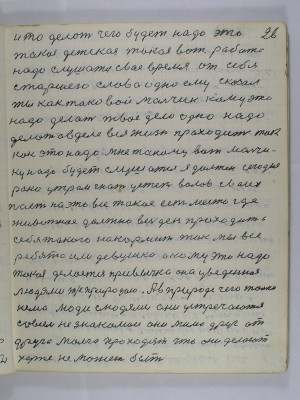 26
что делот чего будет надо это
такая детская такоя вот работа
надо слушать свае время от себя
старшего слова одно ему сказал
ты как тако вой молчик кому это
надо делат твое дело одно надо
делот вся жизн проходит
как это надо мне такому вот малчи-
ку надо будет слушатся я должен сегодня
рано утром волов своих
на это все такое ест место где
животное должно проходить
себя такого накормит так мы все
ребята или девушка а кому это надо
такая делается привычка она уведенная
людями природаю. А в природе чего только
нема люди слюдями они устречаются
совсем не знакомаи они мимо друг от
друга молча проходят что они делают
хорже не может быть